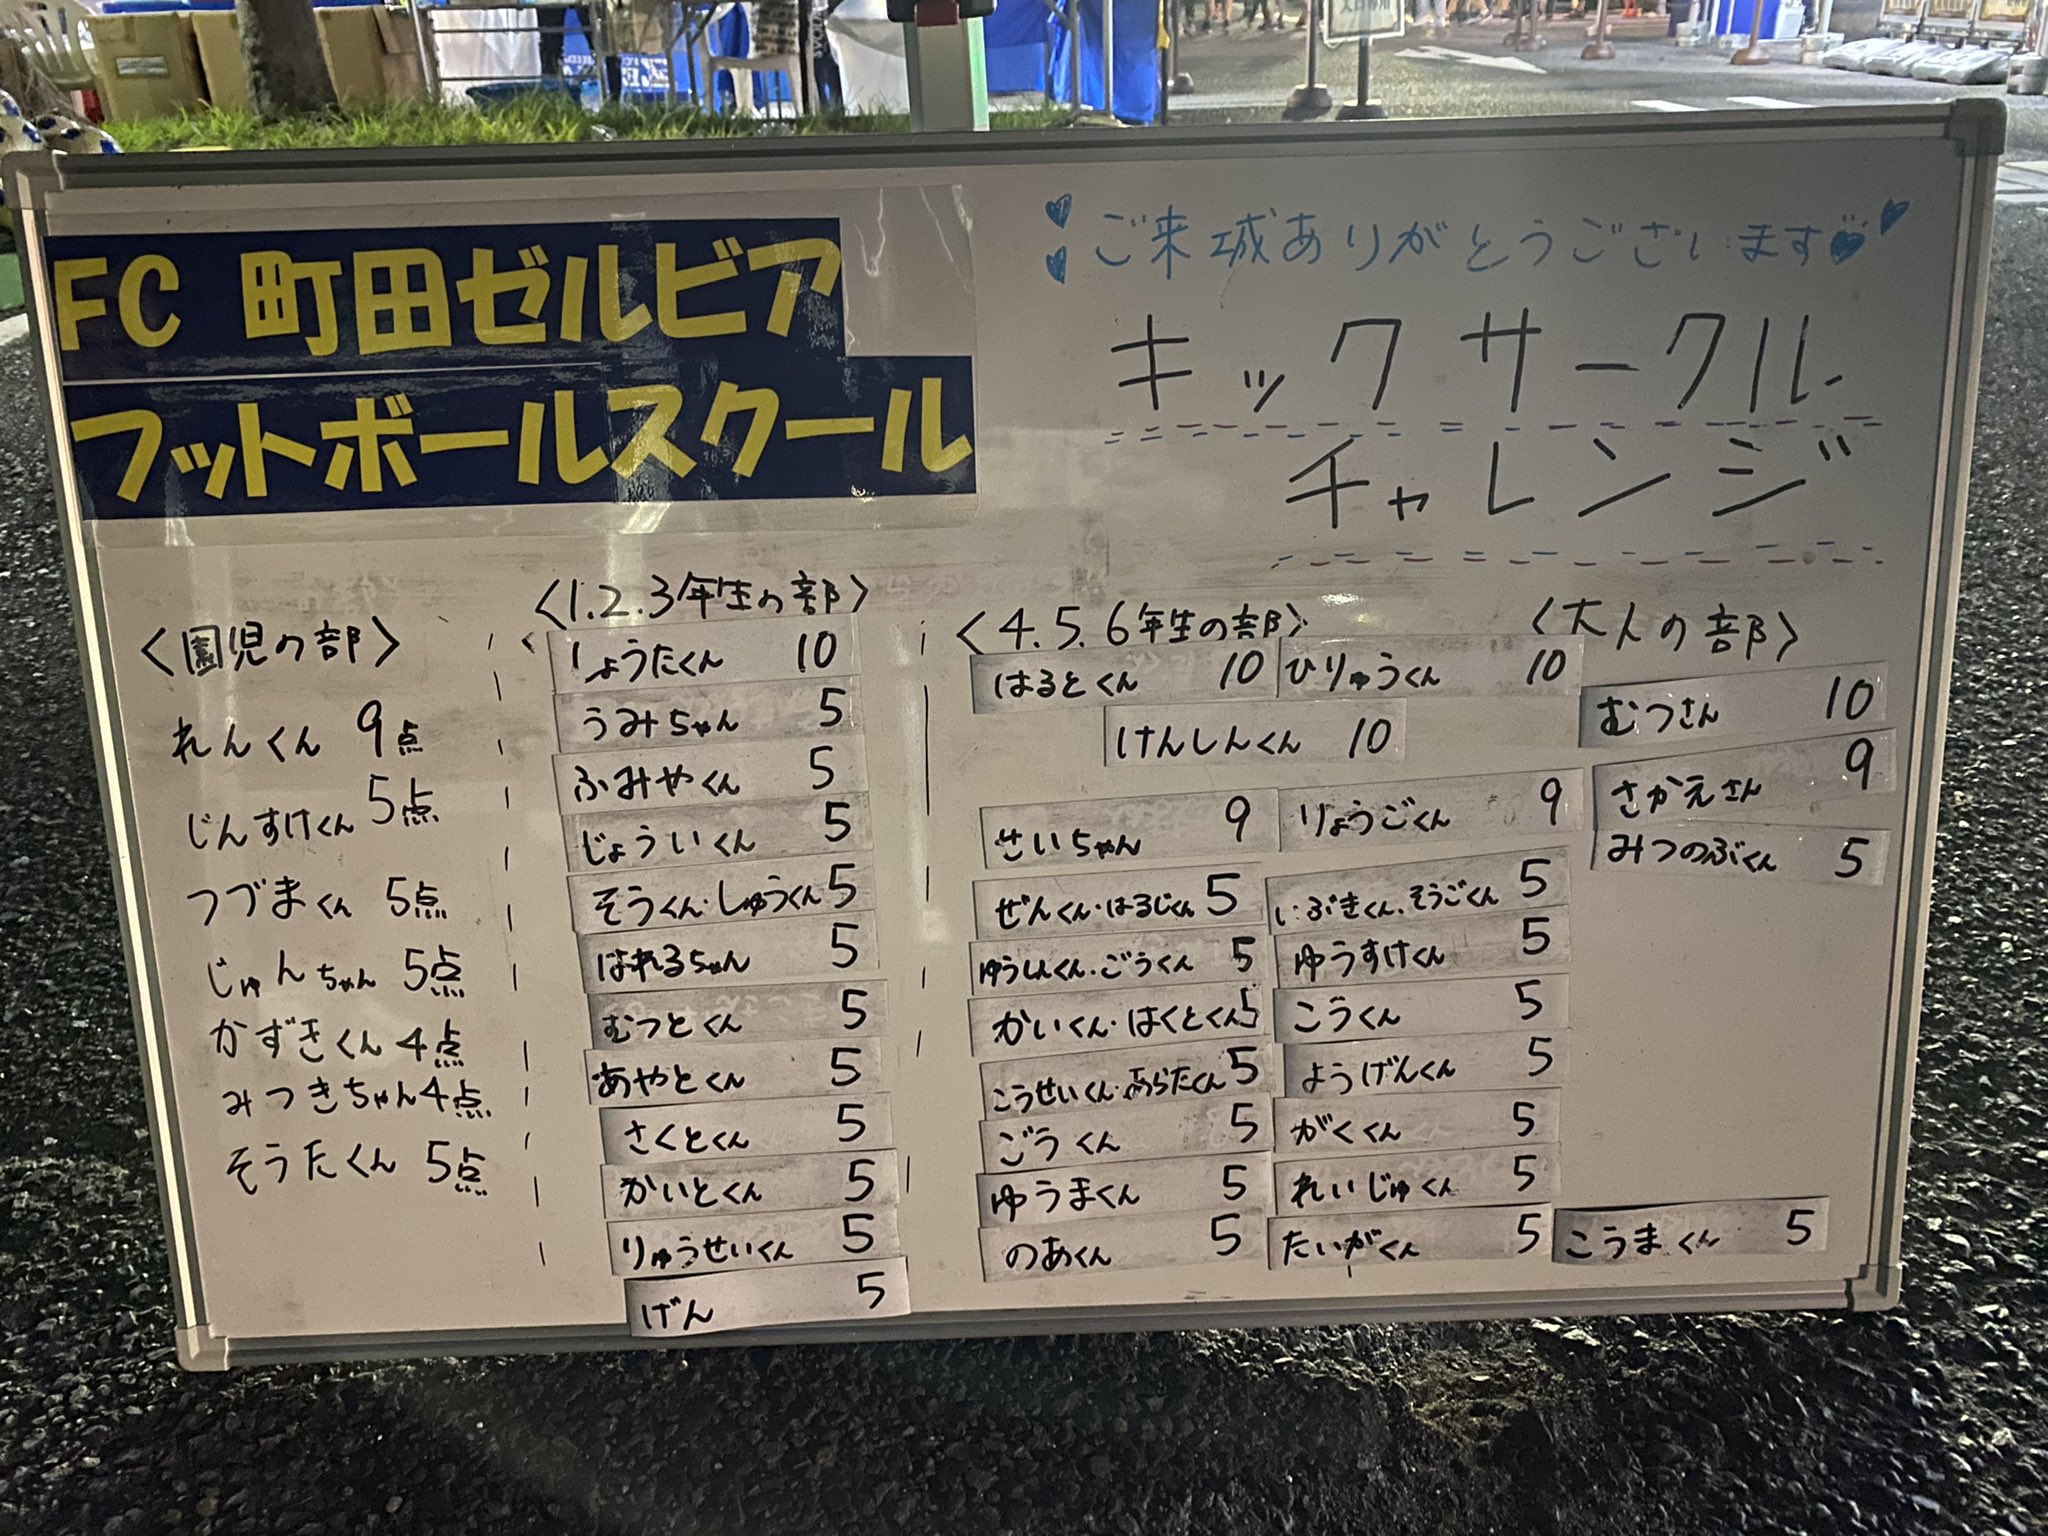 FC 町田ゼルビア
フットボールスクール
ご来城ありがとうございます
キックサークル
チャレンジ
〈園児の部〉
れんくん 9点
じんすけくん 5点
つづまくん 5点
じゅんちゃん 5点
かずきくん 4点
みつきちゃん 4点
そうたくん 5点
〈1.2.3年生の部〉
しょうたくん 10
うみちゃん 5
ふみやくん 5
じょういくん 5
そうくん・しゅうくん 5
はれるちゃん 5
むつとくん 5
あやとくん 5
さくとくん 5
かいとくん 5
りゅうせいくん 5
げん 5
〈4.5.6年生の部〉
はるとくん 10
ひりゅうくん 10
けんしんくん 10
せいちゃん 9
りょうごくん 9
ぜんくん・はるじくん 5
いぶきくん、そうごくん 5
ゆうしんくん・ごうくん 5
ゆうすけくん 5
かいくん・はくとくん 5
こうくん 5
こうせいくん・あらたくん 5
ようげんくん 5
ごうくん 5
がくくん 5
ゆうまくん 5
れいじゅくん 5
のあくん 5
たいがくん 5
〈大人の部〉
むつさん 10
さかえさん 9
みつのぶくん 5
こうまくん 5